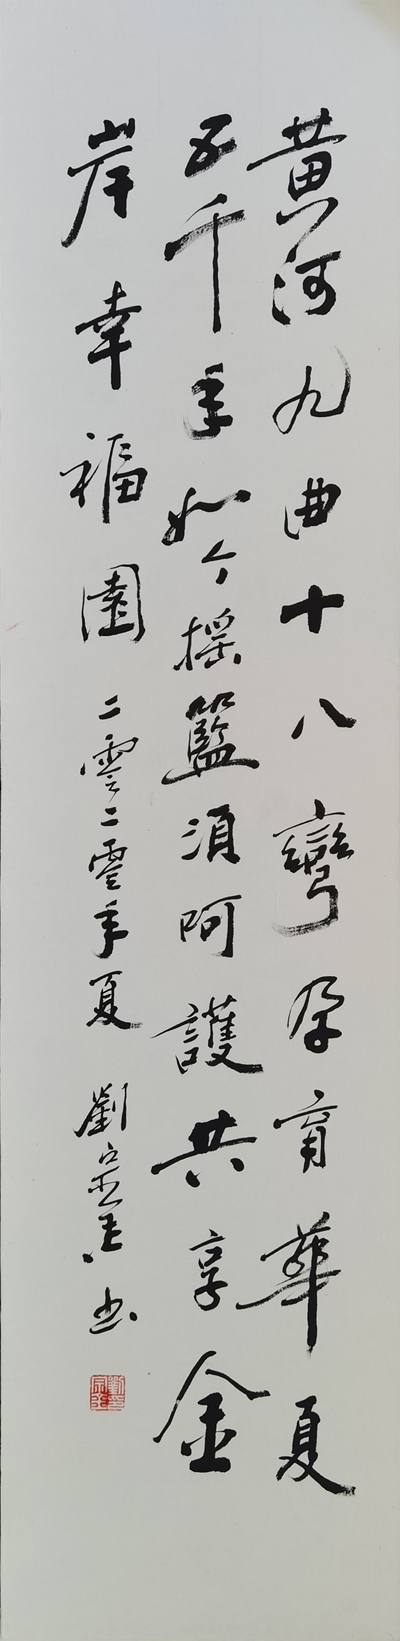 黄河九曲十八彎孕育華夏
五千年如今摇籃須阿護共享金
岸幸福園二零二零年夏劉宗 书